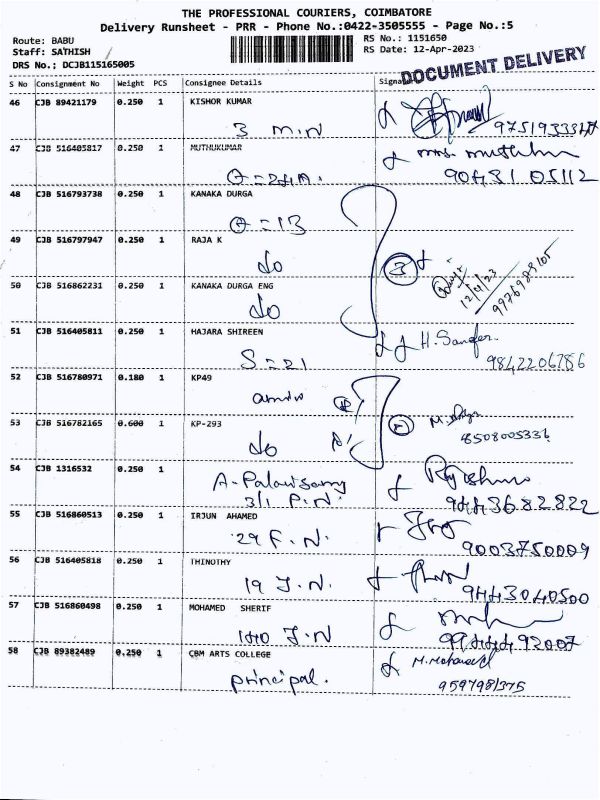 THE PROFESSIONAL COURIERS, COIMBATORE
Delivery Runsheet - PRR - Phone No.:0422-3505555 - Page No.:5
Route: BABU RS No.: 1151650
Staff: SATHISH RS Date: 12-Apr-2023
DRS No.: DCJB115165005
DOCUMENT DELIVERY
S No Consignment No Weight PCS Consignee Details Signature
46 CJB 89421179 0.250 1 KISHOR KUMAR
3 M.N
47 CJB 516405817 0.250 1 MUTHUKUMAR
90431 05112
48 CJB 516793738 0.250 1 KANAKA DURGA
=13
49 CJB 516797947 0.250 1 RAJA K
do
3
12/4/23
50 CJB 516862231 0.250 1 KANAKA DURGA ENG
do
51 CJB 516405811 0.250 1 HAJARA SHIREEN
S=21
9842206786
52 CJB 516780971 0.180 1 KP49
53 CJB 516782165 0.600 1 KP-293
do
8508005336
54 CJB 1316532 0.250 1
A-Palanisamy
3/1 P.N.
9443682822
55 CJB 516860513 0.250 1 IRJUN AHAMED
29 F.N.
9003750009
56 CJB 516405818 0.250 1 THINOTHY
19 J.N.
9443040500
57 CJB 516860498 0.250 1 MOHAMED SHERIF
140 J.N
9944492007
58 CJB 89382489 0.250 1 CBM ARTS COLLEGE
principal.
9597981375